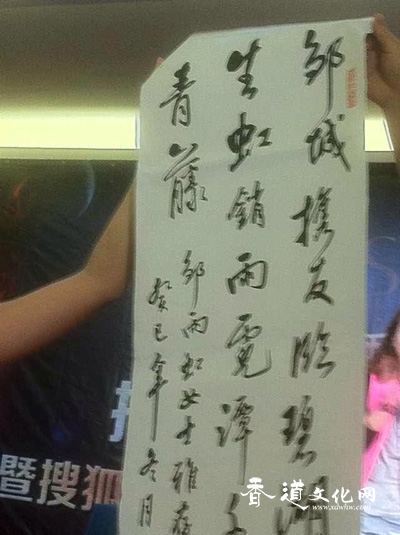 邹城携友临碧
生虹销雨霁潭
青藤
邹雨虹女士雅存
癸巳年冬月
暨搜狐
香道文化网
www.xdwhw.com